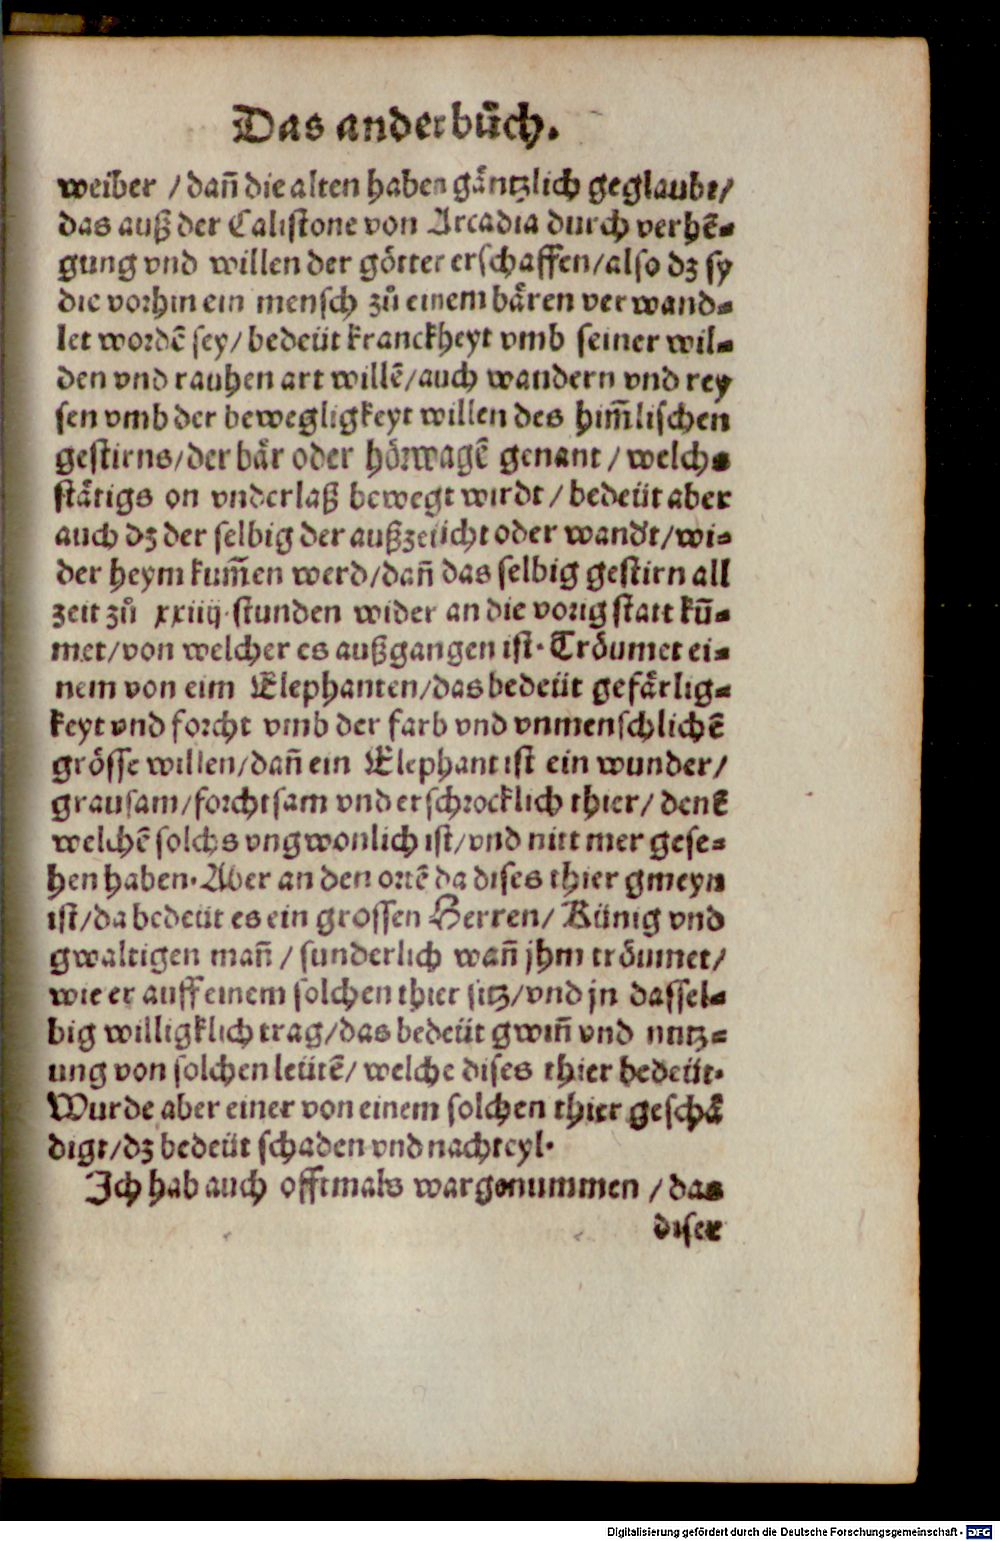 Das ander bůch.
weiber / dañ die alten haben gäntzlich geglaubt /
das auß der Calistone von Arcadia durch verhẽ-
gung vnd willen der götter erschaffen / also dz sy
die vorhin ein mensch zů einem bären verwand-
let wordẽ sey / bedeüt kranckheyt vmb seiner wil-
den vnd rauhen art willẽ / auch wandern vnd rey
sen vmb der bewegligkeyt willen des him̃lischen
gestirns / der bär oder hörwagẽ genant / welchs
stätigs on vnderlaß bewegt wirdt / bedeüt aber
auch dz der selbig der außzeücht oder wandt / wi-
der heym kum̃en werd / dañ das selbig gestirn all
zeit zů xxiiij. stunden wider an die vorig statt kũ-
met / von welcher es außgangen ist. Tröumet ei-
nem von eim Elephanten / das bedeüt gefärlig-
keyt vnd forcht vmb der farb vnd vnmenschlichẽ
grösse willen / dañ ein Elephant ist ein wunder /
grausam / forchtsam vnd erschrocklich thier / denẽ
welchẽ solchs vngwonlich ist / vnd nitt mer gese-
hen haben. Aber an den ortẽ da dises thier gmeyn
ist / da bedeüt es ein grossen Herren / Künig vnd
gwaltigen mañ / sunderlich wañ jhm tröumet /
wie er auff einem solchen thier sitz / vnd jn dassel-
big willigklich trag / das bedeüt gwiñ vnd nutz-
ung von solchen leütẽ / welche dises thier bedeüt.
Wurde aber einer von einem solchen thier geschä
digt / dz bedeüt schaden vnd nachteyl.
Ich hab auch offtmals wargenummen / das
diser
Digitalisierung gefördert durch die Deutsche Forschungsgemeinschaft - DFG